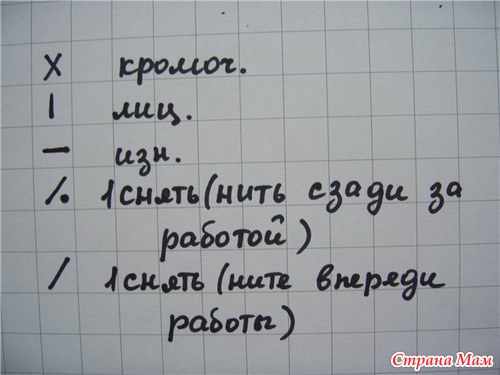 X кромоч.
| лиц.
— изн.
/. 1 снять (нить сзади за
работой)
/ 1 снять (ните впереди
работы)
Страна Мам